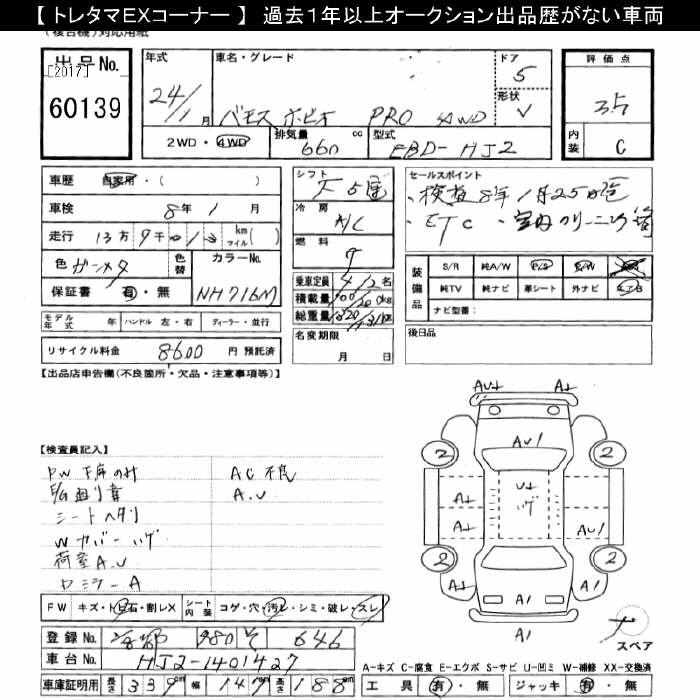 【 トレタマEXコーナー 】 過去1年以上オークション出品歴がない車両
出品No.
[2017]
60139
年式
24/1月
車名・グレード
バモス ホビオ PRO 4WD
ドア
5
形状
V
評価点
3.5
内装
C
2WD・4WD
排気量
660
cc
型式
EBD-HJ2
車歴
自家用・( )
車検
8年 1月
走行
13万9千
km
マイル( )
色
ガンメタ
色替
カラーNo.
NH716M
保証書
有・無
シフト
F5速
冷房
A/C
燃料
乗車定員
4/2名
積載量
kg
総重量
kg
名変期限
月 日
セールスポイント
・検査8年1月25日迄
・ETC ・室内クリーニング済
装備品
S/R
純A/W
P/S
P/W
純TV
純ナビ
革シート
外ナビ
ナビ型番:
後日品
モデル年式
年
ハンドル 左・右
ディーラー・並行
リサイクル料金
8600
円 預託済
【出品店申告欄(不良箇所・欠品・注意事項等)】
【検査員記入】
PW 下庫のサ
AC不良
A.U
シートヘタリ
Wカバーハゲ
荷室A.U
ロミラーA
AU+
A+
AU1
2
2
A+
U+
ハゲ
A+
AU1
2
2
A+
A1
A1
A1
スペア
FW
キズ・トビ石・割レX
シート内装
コゲ・穴・汚レ・シミ・破レ・スレ
登録No.
京都 480 そ 646
車台No.
HJ2-1401427
車庫証明用
長さ
339
cm
幅
147
cm
高さ
188
cm
A-キズ C-腐食 E-エクボ S-サビ U-凹ミ W-補修 XX-交換済
工具
有・無
ジャッキ
有・無